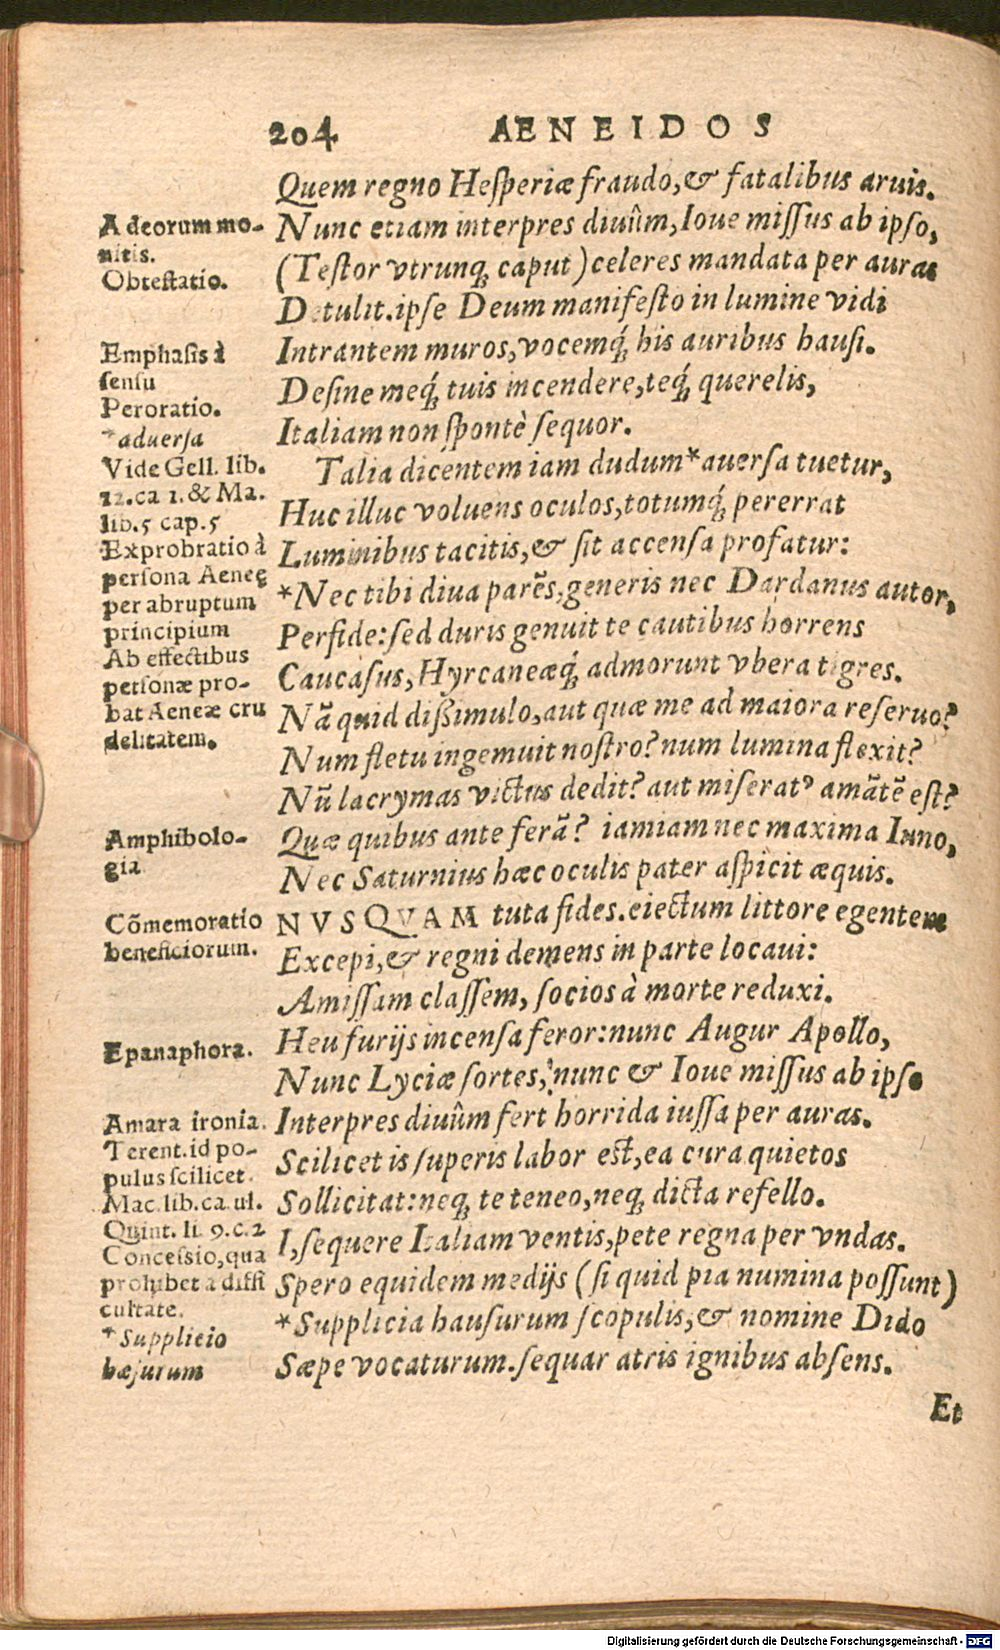 204 AENEIDOS
Quem regno Hesperiæ fraudo,& fatalibus aruis.
Nunc etiam interpres diuûm,Ioue missus ab ipso,
(Testor vtrunq; caput)celeres mandata per auras
Detulit.ipse Deum manifesto in lumine vidi
Intrantem muros,vocemq́; his auribus hausi.
Desine meq́; tuis incendere,teq́; querelis,
Italiam non spontè sequor.
Talia dicentem iam dudum*auersa tuetur,
Huc illuc voluens oculos,totumq́; pererrat
Luminibus tacitis,& sit accensa profatur:
*Nec tibi diua parẽs,generis nec Dardanus autor,
Perfide:sed duris genuit te cautibus horrens
Caucasus,Hyrcaneæq́; admorunt vbera tigres.
Nã quid dißimulo,aut quæ me ad maiora reseruo?
Num fletu ingemuit nostro?num lumina flexit?
Nũ lacrymas victus dedit? aut miseratꝰ amãtẽ est?
Quæ quibus ante ferã? iamiam nec maxima Iuno,
Nec Saturnius hæc oculis pater aspicit æquis.
NVSQVAM tuta fides.eiectum littore egentem
Excepi,& regni demens in parte locaui:
Amissam classem, socios à morte reduxi.
Heu furijs incensa feror:nunc Augur Apollo,
Nunc Lyciæ sortes, nunc & Ioue missus ab ipso
Interpres diuûm fert horrida iussa per auras.
Scilicet is superis labor est,ea cura quietos
Sollicitat:neq; te teneo,neq; dicta refello.
I,sequere Italiam ventis,pete regna per vndas.
Spero equidem medijs (si quid pia numina possunt)
*Supplicia hausurum scopulis,& nomine Dido
Sæpe vocaturum.sequar atris ignibus absens.
Et
A deorum mo-
nitis.
Obtestatio.
Emphasis à
sensu
Peroratio.
*aduersa
Vide Gell. lib.
12.ca 1.& Ma.
lib.5 cap.5
Exprobratio à
persona Aeneę
per abruptum
principium
Ab effectibus
personæ pro-
bat Aeneæ cru
delitatem.
Amphibolo-
gia
Cõmemoratio
beneficiorum.
Epanaphora.
Amara ironia.
Terent.id po-
pulus scilicet.
Mac.lib.ca.ul.
Quint. li 9.c.2
Concessio,qua
prohibet a diffi
cultate.
*Supplicio
hæsurum
Digitalisierung gefördert durch die Deutsche Forschungsgemeinschaft - DFG